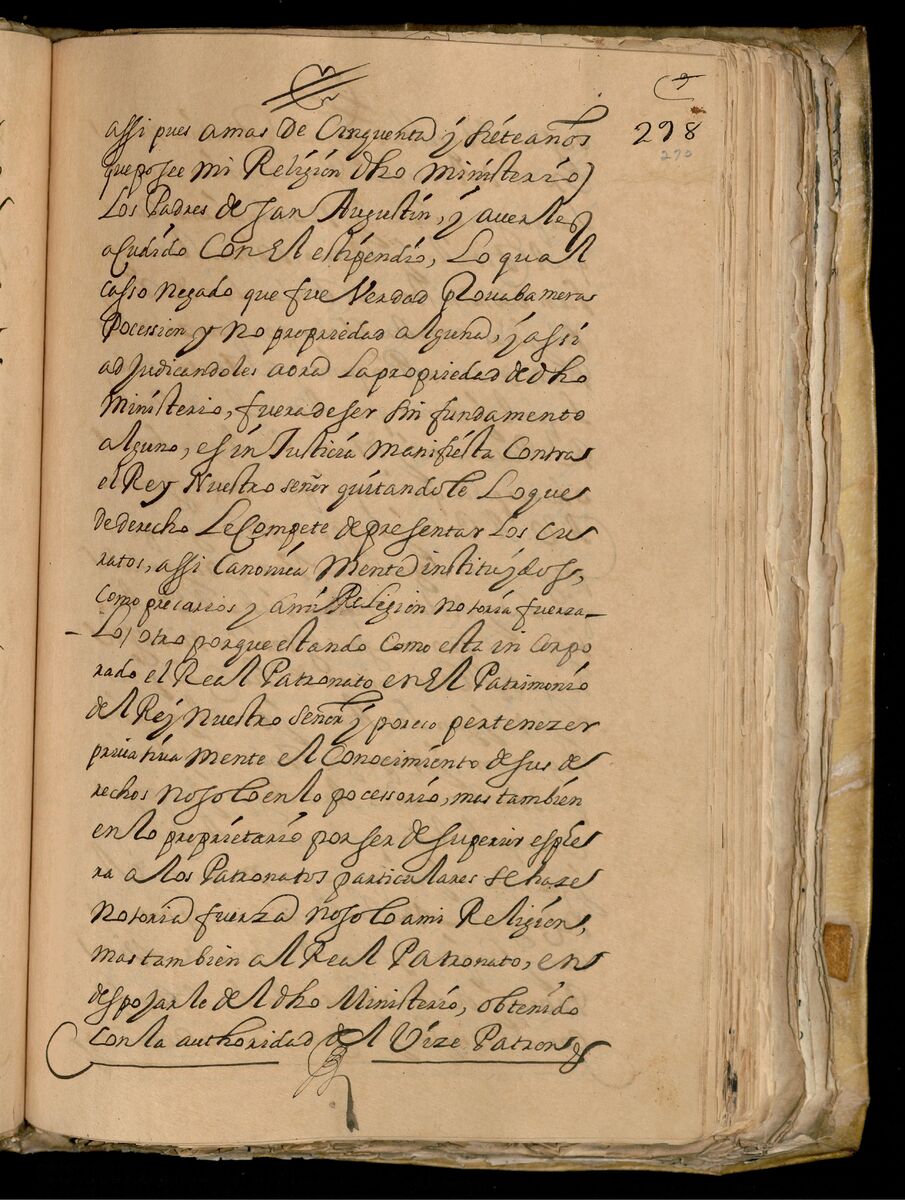 298
270
assi pues amas de Cinquenta y siete años
que posee mi Religion dho Ministerio)
Los Padres de san Augustin, y averles
acudido Con El estipendio, Lo qual
casso negado que fue Verdad provaba mera
pocession y no propriedad alguna, y assi
adjudicandoles aora La propriedad de dho
Ministerio, fuera de ser sin fundamento
alguno, es in Justicia manifiesta Contra
el Rey Nuestro señor quitandole Lo que
de derecho Le Compete de presentar Los cu
ratos, assi Canonica Mente instituydos,
como precarios y a mi Religion notoria fuerza
Lo otro porque estando Como esta in Corpo
rado el Real Patronato en El Patrimonio
del Rey Nuestro señor y por eso pertenezer
privativa mente el Conocimiento de sus de
rechos no solo en lo pocessorio, mas tambien
en lo proprietario por ser de superior esphe
ra a los Patronatos particulares se haze
Notoria fuerza no solo ami Religion,
mas tambien al Real Patronato, en
despojarle del dho Ministerio, obtenido
con la authoridad del Vize Patron